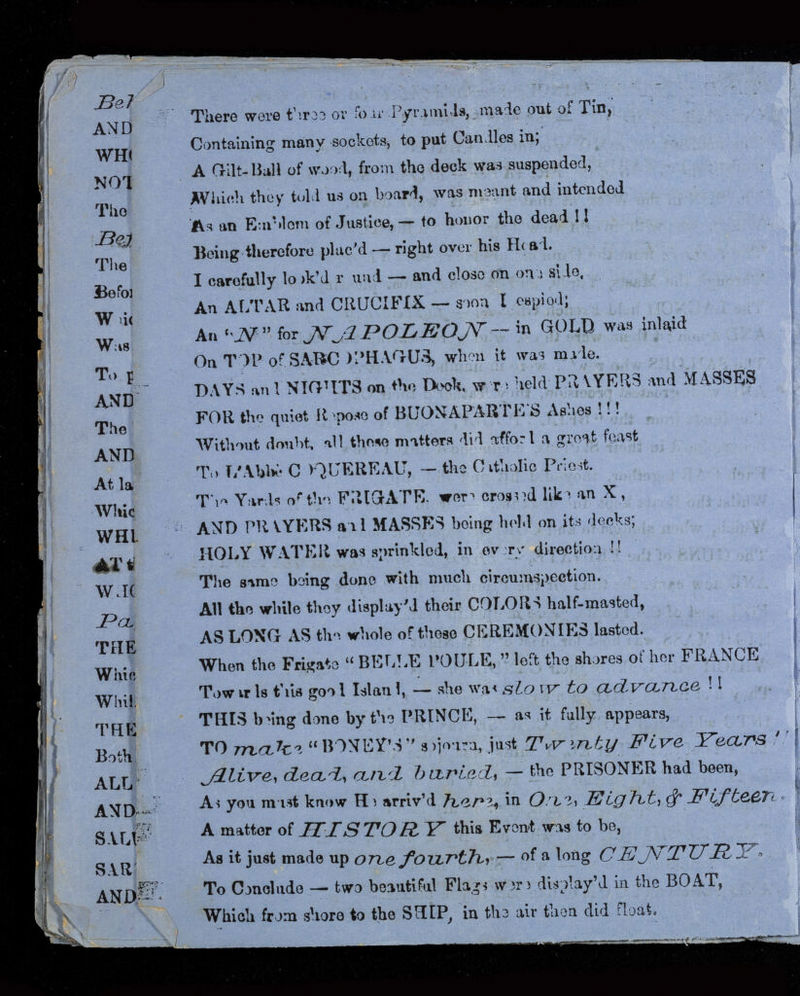 Bel
AND
WH
NOT
The
Bej
The
Befor
W
Was
To p
AND
The
AND
At la
Whic
WHI
AT
W.
Pa
THE
Whic
Whil
THE
Both
ALL
AND
SAL
SAR
AND
There were three or four Pyramids, made out of Tin,
Containing many sockets, to put Candles in;
A Gilt-Ball of wood, from the deck was suspended,
Which they told us on board, was meant and intended
As an Emblem of Justice, — to honor the dead !!
Being therefore plac'd — right over his Head.
I carefully look'd round — and close on one side,
An ALTAR and CRUCIFIX — soon I espied;
An "N" for NAPOLEON — in GOLD was inlaid
On TOP of SARCOPHAGUS, when it was made.
DAYS and NIGHTS on the Deck, were held PRAYERS and MASSES
FOR the quiet Repose of BUONAPARTE'S Ashes !!!
Without doubt, all those matters did afford a great feast
To L'Abbé COQUEREAU, — the Catholic Priest.
The Yards of the FRIGATE, were crossed like an X,
AND PRAYERS and MASSES being held on its decks;
HOLY WATER was sprinkled, in every direction !!
The same being done with much circumspection.
All the while they display'd their COLORS half-masted,
AS LONG AS the whole of those CEREMONIES lasted.
When the Frigate "BELLE POULE," left the shores of her FRANCE
Towards this good Island, — she was slow to advance !!
THIS being done by the PRINCE, — as it fully appears,
TO make "BONEY'S" sojourn, just Twenty Five Years
Alive, dead, and buried, — the PRISONER had been,
As you must know He arriv'd here, in One, Eight, & Fifteen
A matter of HISTORY this Event was to be,
As it just made up one fourth, — of a long CENTURY.
To Conclude — two beautiful Flags were display'd in the BOAT,
Which from shore to the SHIP, in the air then did float.